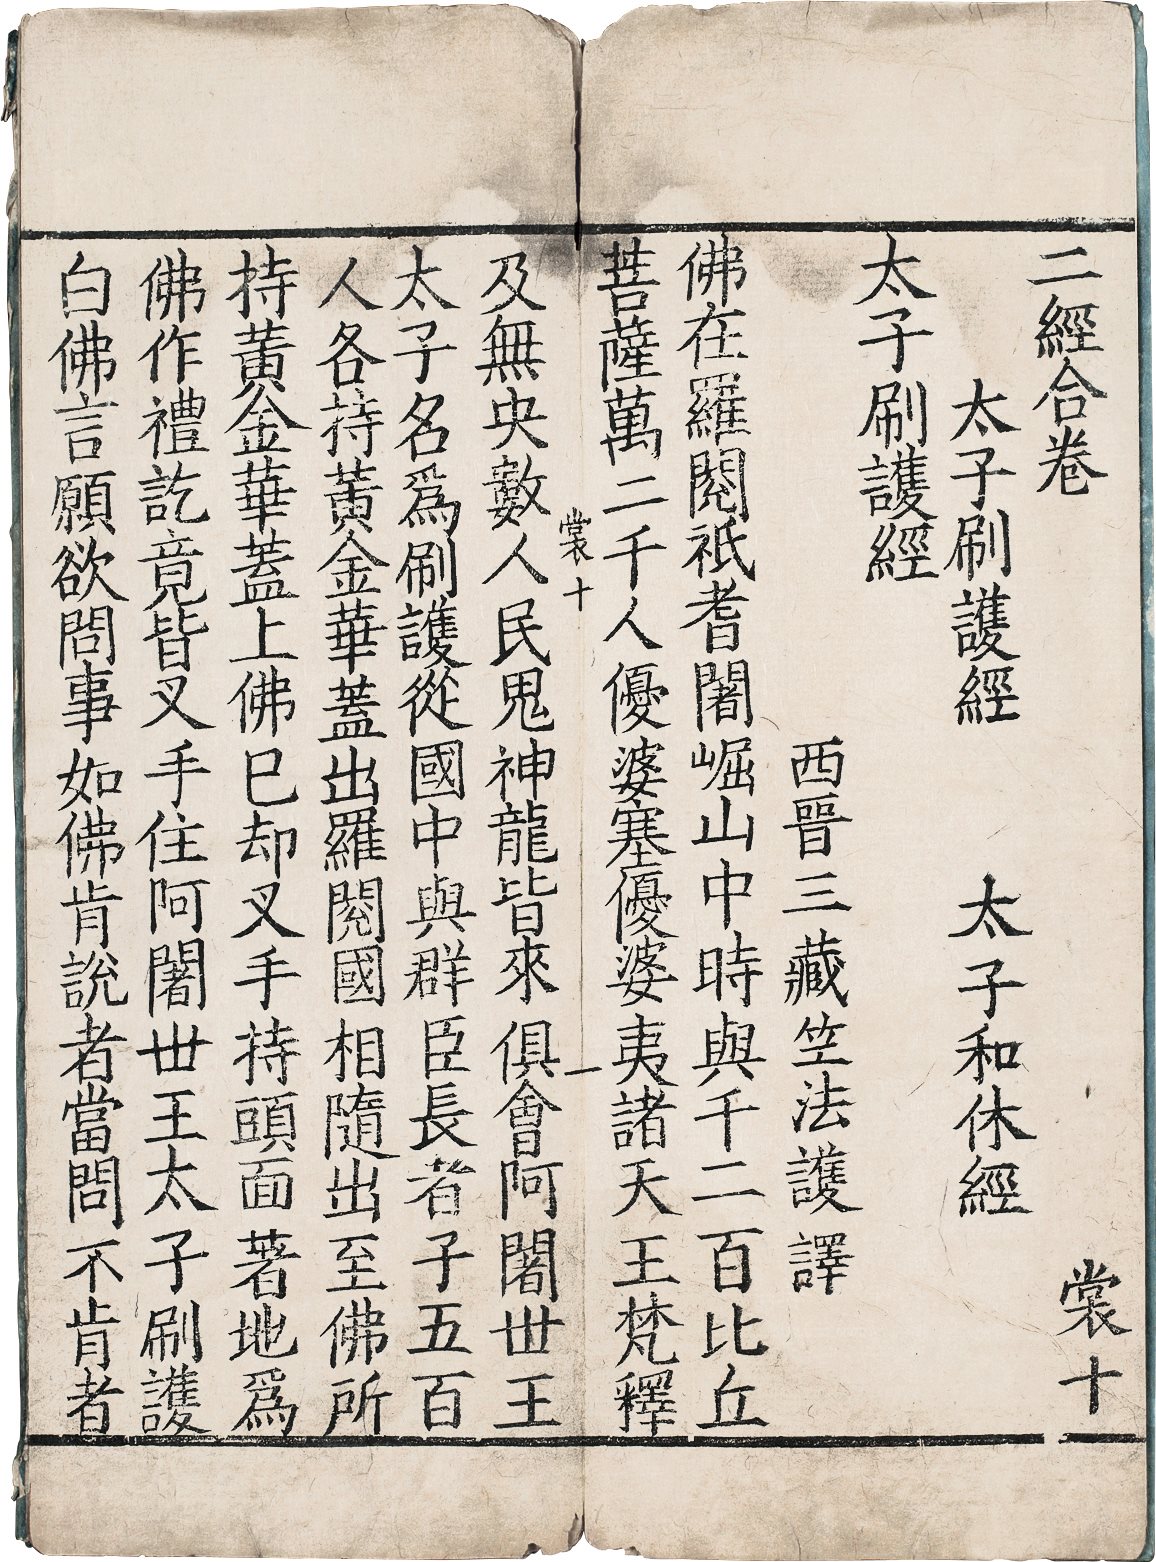 二經合卷 裳十
太子刷護經 太子和休經
太子刷護經
西晉三藏竺法護譯
佛在羅閱祇耆闍崛山中時與千二百比丘
菩薩萬二千人優婆塞優婆夷諸天王梵釋
裳十 一
及無央數人民鬼神龍皆來俱會阿闍世王
太子名爲刷護從國中與群臣長者子五百
人各持黃金華蓋出羅閱國相隨出至佛所
持黃金華蓋上佛已却叉手持頭面著地爲
佛作禮訖竟皆叉手住阿闍世王太子刷護
白佛言願欲問事如佛肯說者當問不肯者